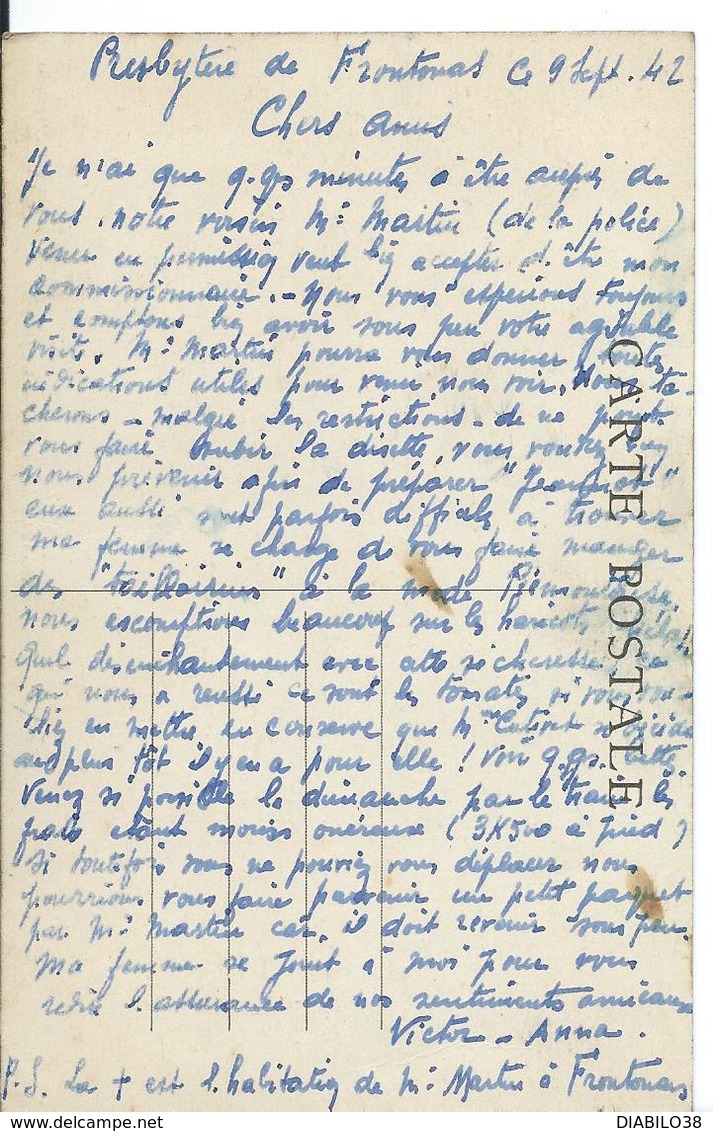 Presbytère de Frontonas ce 9 Sept. 42
Chers amis
Je n'ai que q.qs minutes à être auprès de
vous. notre voisin Mr Martin (de la police)
venu en permission veut bien accepter d'être mon
commissionnaire. - Nous vous espérions toujours
et comptons bien avoir sous peu votre agréable
visite. Mr Martin pourra vous donner toutes
indications utiles pour venir nous voir. Nous tâ-
cherons - malgré les restrictions - de ne point
vous faire subir la disette, vous voudrez bien
nous prévenir afin de préparer
eux aussi sont parfois difficiles à trouver
ma femme se charge de vous faire manger
des "taillairins" à la mode Piémontaise.
nous escomptions beaucoup sur les haricots hélas!
quel désenchantement avec cette sécheresse, ce
qui nous a réussi ce sont les tomates si vous vou-
lez en mettre en conserve que Mme se décide
au plus tôt il y en a pour elle! Voir q.qs.
Venez si possible le dimanche par le train les
frais étant moins onéreuse (3K500 à pied)
si toutefois vous ne pouviez vous déplacer nous
pourrions vous faire parvenir un petit paquet
par Mr Martin car il doit revenir sous peu.
Ma femme se joint à moi pour vous
redire l'assurance de nos sentiments amicaux
Victor - Anna.
P.S. La + est l'habitation de Mr Martin à Frontonas
CARTE POSTALE
DIABILO38